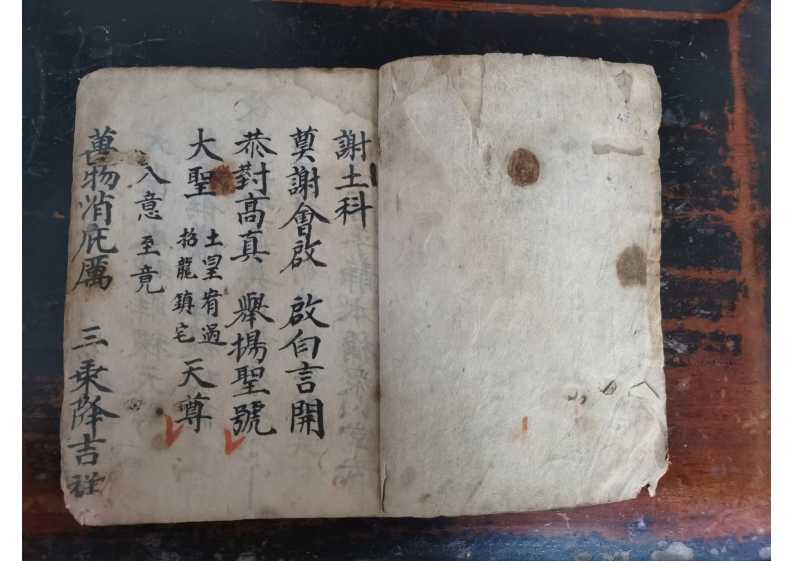 謝土科
奠謝會啟 啟白言開
恭對高真 舉揚聖號
大聖 土皇宥過 招龍鎮宅 天尊
入意 至竟
萬物消庇厲 三乘降吉祥